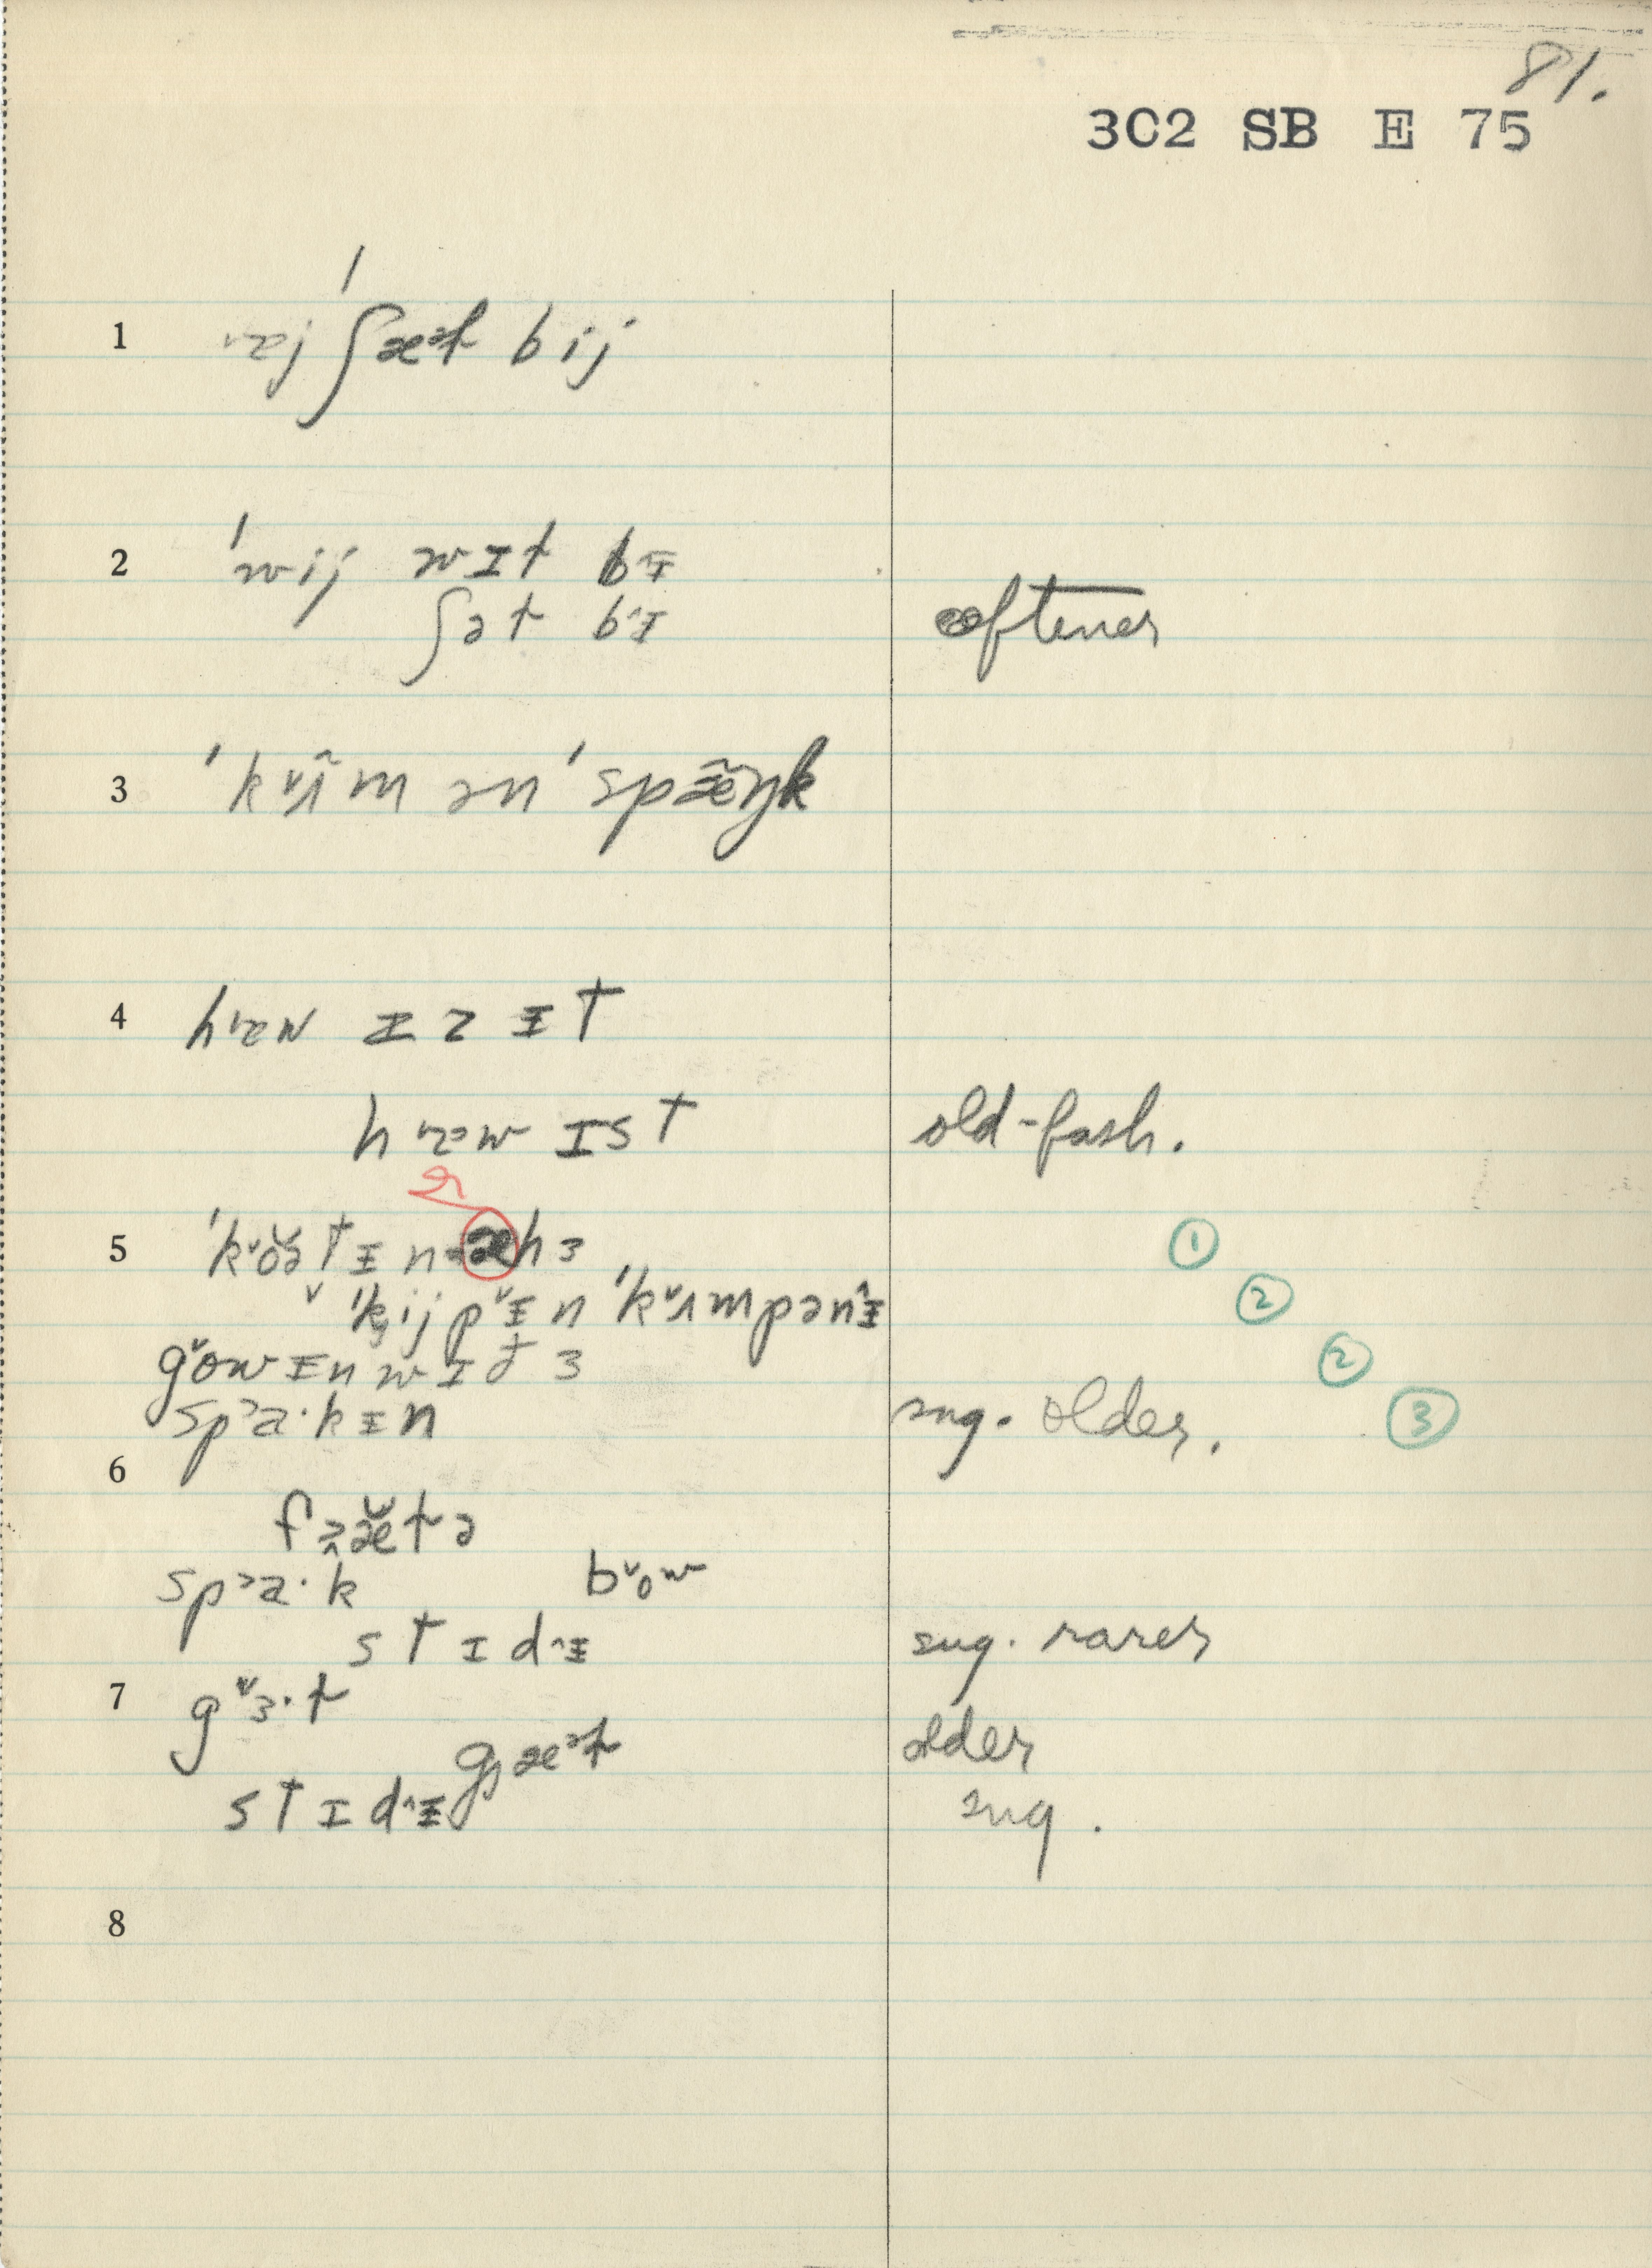 81.
3C2 SB E 75
1 ɐj ʃæᵊt bij
2 ˈwij wɪt bᵻ
ʃət bᵻ oftener
3 ˈkʌ̃m ən ˈspæ̃ŋk
4 hɐw ɪz ᵻt
hɐw ɪst old-fash.
5 ˈkoətᵻn hɜ ①
ˈkijpᵻn ˈkʌmpənᵻ ②
gowᵻn wɪð ɜ ②
spa·kᵻn sug. older. ③
6
fæ̆tə
spa·k bow
stɪdᵻ sug. rarer
7 gɜ·t
gæᵊt older
stɪdᵻ sug.
8